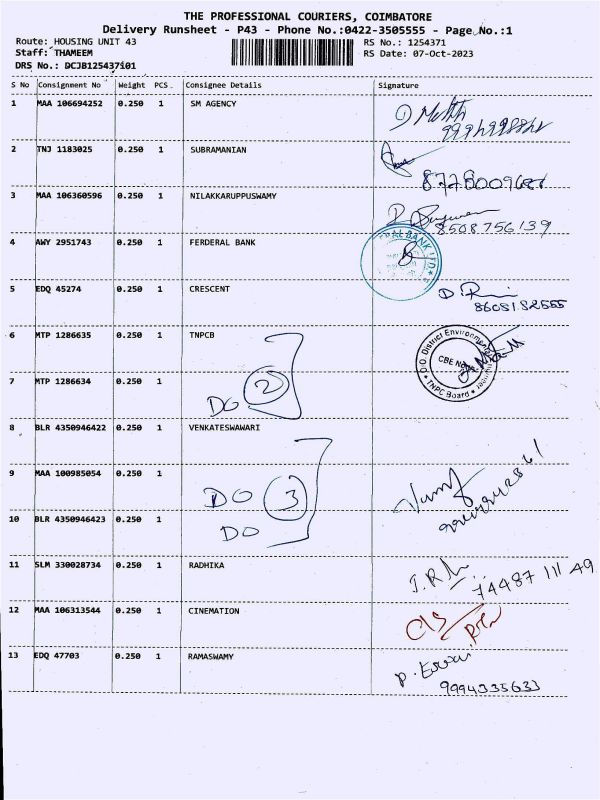 THE PROFESSIONAL COURIERS, COIMBATORE
Delivery Runsheet - P43 - Phone No.:0422-3505555 - Page No.:1
Route: HOUSING UNIT 43
RS No.: 1254371
Staff: THAMEEM
RS Date: 07-Oct-2023
DRS No.: DCJB125437i01
S No Consignment No Weight PCS. Consignee Details Signature
1 MAA 106694252 0.250 1 SM AGENCY
2 TNJ 1183025 0.250 1 SUBRAMANIAN
3 MAA 106360596 0.250 1 NILAKKARUPPUSWAMY
8508756139
4 AWY 2951743 0.250 1 FERDERAL BANK
BANK LTD
5 EDQ 45274 0.250 1 CRESCENT
8608182555
6 MTP 1286635 0.250 1 TNPCB
O.O. District Environmental
CBE
TNPC Board
7 MTP 1286634 0.250 1
DO 2
8 BLR 4350946422 0.250 1 VENKATESWAWARI
9 MAA 100985054 0.250 1
DO 3
10 BLR 4350946423 0.250 1
DO
11 SLM 330028734 0.250 1 RADHIKA
74487 111 49
12 MAA 106313544 0.250 1 CINEMATION
13 EDQ 47703 0.250 1 RAMASWAMY
9994335633